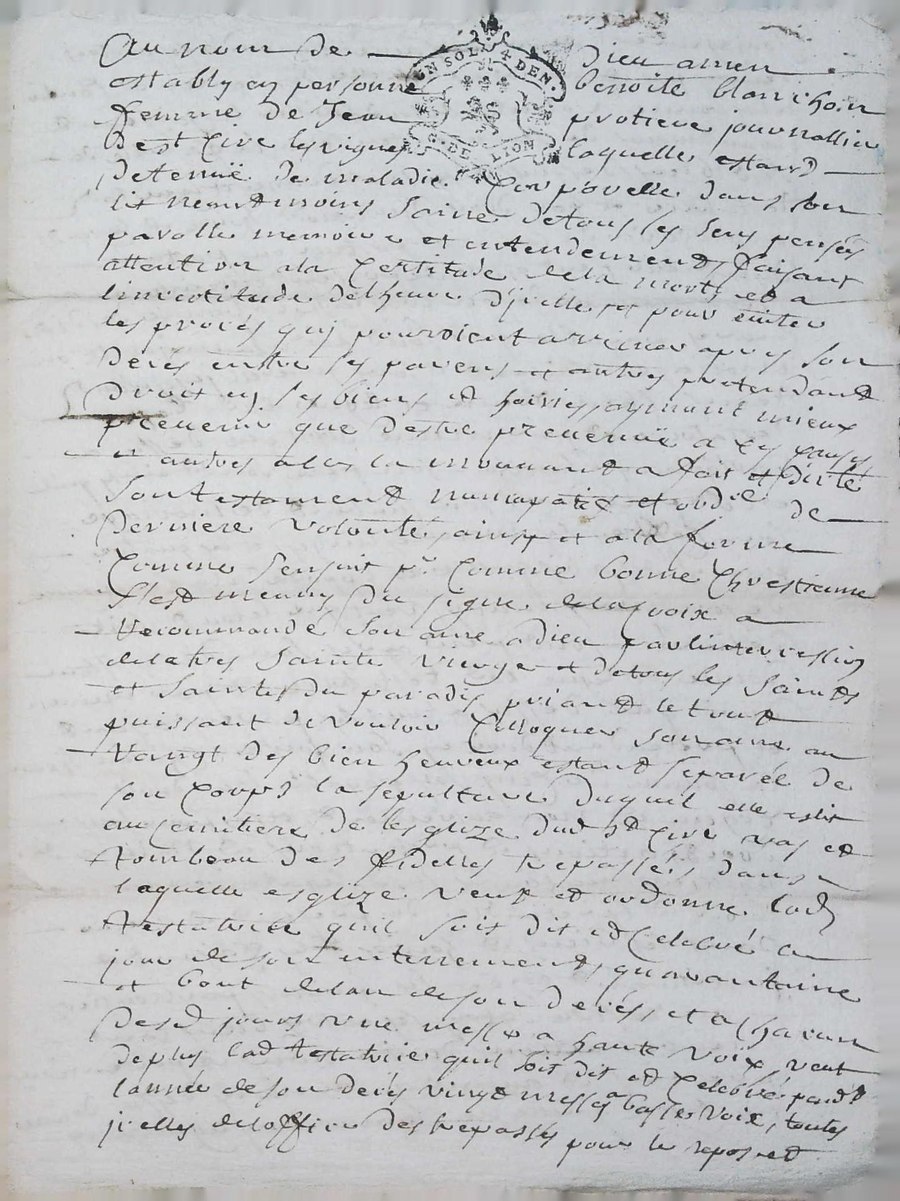 Au nom de Dieu amen
UN SOL 4 DEN.
G. DE LION
establÿ en personne benoite blanchon
femme de Jean protiere journallier
de st Cire les vignes laquelle estand
detenuë de maladie corporelle dans son
lit neantmoins saine de tous ses sens pensés
parolle memoire et entendement, faisant
attention a la certitude de la mort et a
lincertitude de lheure dycelle et pour éuiter
les procés quj pouroient arriuer apres son
decés entre ses parens et autres pretendant
droit en ses biens et hoiries, aymant mieux
preuenir que destre preuenuë a ces causes
et autres a ce la mouuant a fait et dicté
son testament nuncupatif et ordre de
derniere volonté, ainsy et a la forme
Comme sensuit pr. Comme bonne Chrestienne
sest munie du signe de la Croix a
recommandé son ame a dieu par lintercession
de la tres sainte vierge et de tous les saints
et saintes du paradis priant le tout
puissant de vouloir Colloquer son ame au
rangt des bien heureux estant separée de
son Corps la sepulture duquel elle eslit
au cemittiere de lesglize dud st Cire vas et
tombeau des fidelles trepassés, dans
laquelle esglize veut et ordonne lad
testatrice quil soit dit et Celebré au
jour de son enterrement, quarantaine
et bout de lan de son decés, et a chacun
desd jours vne messe a haute voix, veut
de plus lad testatrice quil soit dit et Celebré pendt
lannée de son decés vingt messes a basse voix, toutes
jcelles de loffice des trepassés pour le repos et